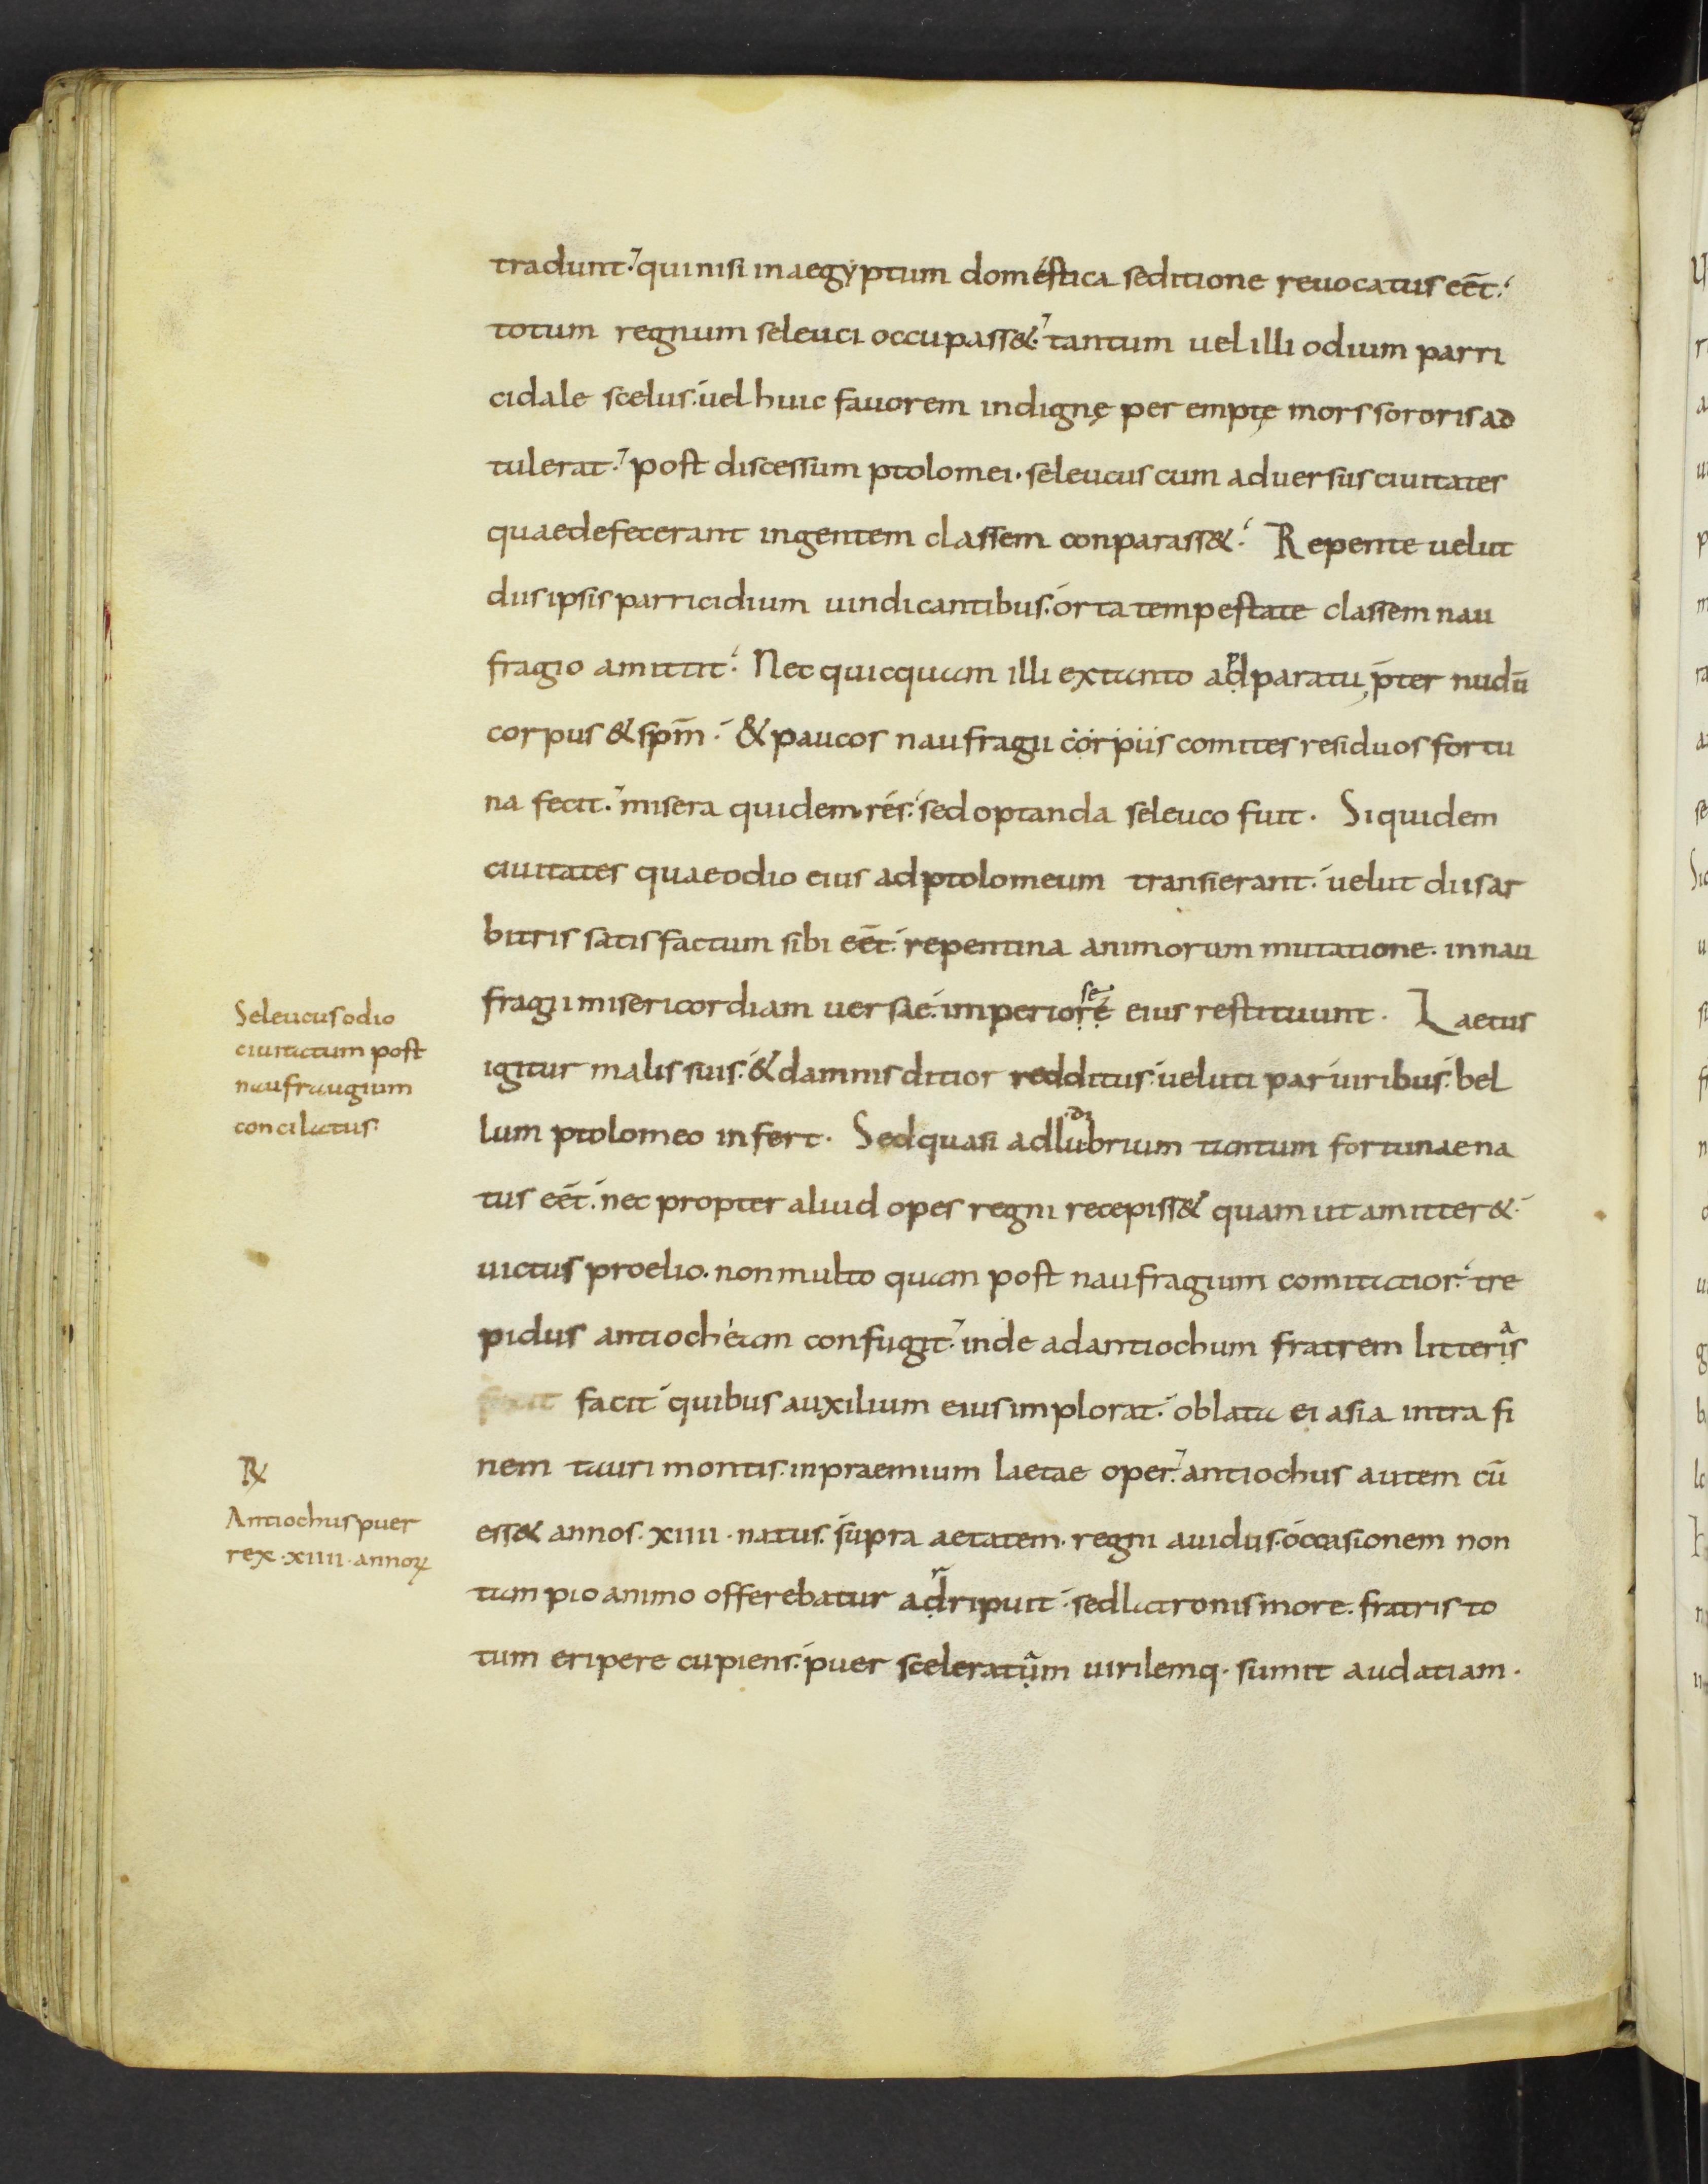 tradunt. qui nisi in aegyptum domestica seditione reuocatus eēt.
totum regnum seleuci occupass&. tantum uel illi odium parri
cidale scelus. uel huic fauorem indignę per emptę mors sororis ad
tulerat. post discessum ptolomei. seleucus cum aduersus ciuitates
quae defecerant ingentem classem conparass&. Repente uelut
diis ipsis parricidium uindicantibus. orta tempestate classem nau
fragio amittit. Nec quicquam illi ex tanto adparatu, p̄ter nudū
corpus & sp̄m. & paucos naufragii corpiis comites residuos fortu
na fecit. misera quidem res. sed optanda seleuco fuit. Siquidem
ciuitates quae odio eius ad ptolomeum transierant. uelut diis ar
bitris satis factum sibi eēt. repentina animorum mutatione. in nau
fragii misericordiam uersae. imperio re eius restituunt. Laetus
igitur malis suis. & damnis ditior redditus. ueluti par uiribus. bel
lum ptolomeo infert. Sed quasi ad lubrium tantum fortunae na
tus eēt. nec propter aliud opes regni recepiss& quam ut amitter&.
uictus proelio. non multo quam post naufragium comitatior. tre
pidus antiocheam confugit. inde ad antiochum fratrem litteris
facit quibus auxilium eius implorat. oblata ei asia intra fi
nem tauri montis. in praemium laetae oper. antiochus autem cū
ess& annos. xiiii. natus. supra aetatem. regni auidus. occasionem non
tam pio animo offerebatur adripuit. sed latronis more. fratris to
tum eripere cupiens. puer sceleratum uirilemq. sumit audatiam.
Seleucus odio
ciuitatum post
naufraugium
concilatus.
Antiochus puer
rex. xiiii. annoꝝ